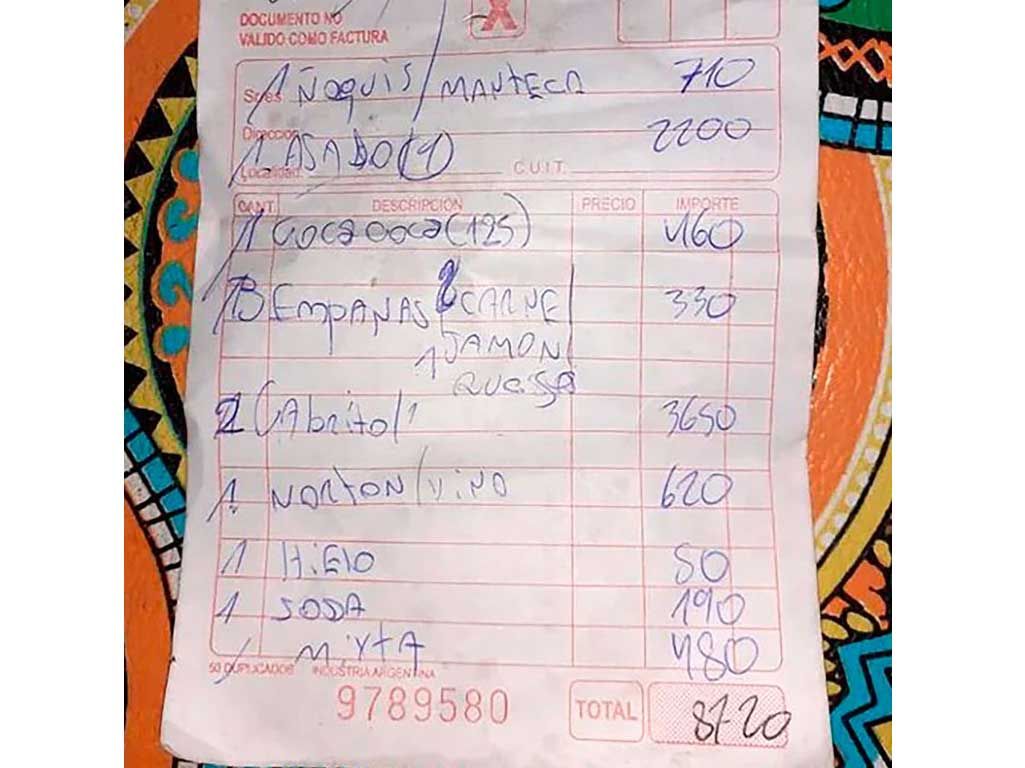 DOCUMENTO NO
VALIDO COMO FACTURA
X
Sres
1 ÑOQUIS/MANTECA 710
Dirección
1 ASADO (1) 2200
Localidad C.U.I.T.
CANT. DESCRIPCION PRECIO IMPORTE
1 COCACOCA (125) 460
3 EMPANAS 2 CARNE/ 330
1 JAMON/
QUESO
2 CABRITO/1 3650
1 NORTON/VINO 620
1 HIELO 80
1 SODA 190
/ MIXTA 480
50 DUPLICADOS INDUSTRIA ARGENTINA
9789580 TOTAL 8720